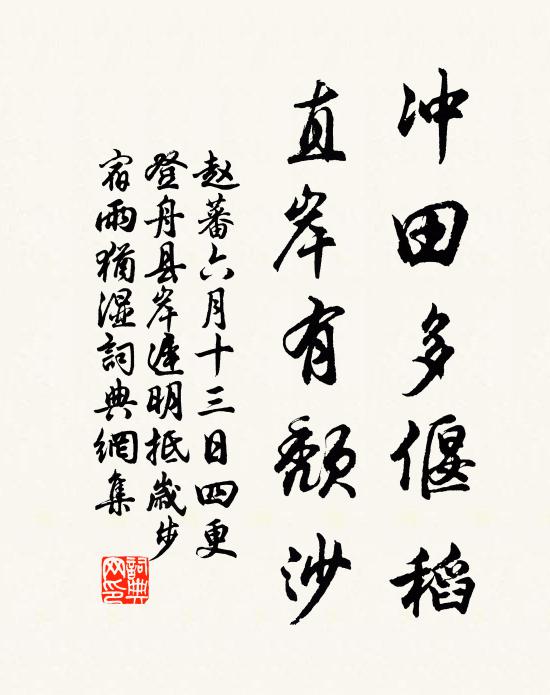 冲田多偃稻
直岸有颓沙
赵蕃六月十三日四更
登舟县岸遲明抵歳步
宿雨猶湿詞典網集
詞典
网印